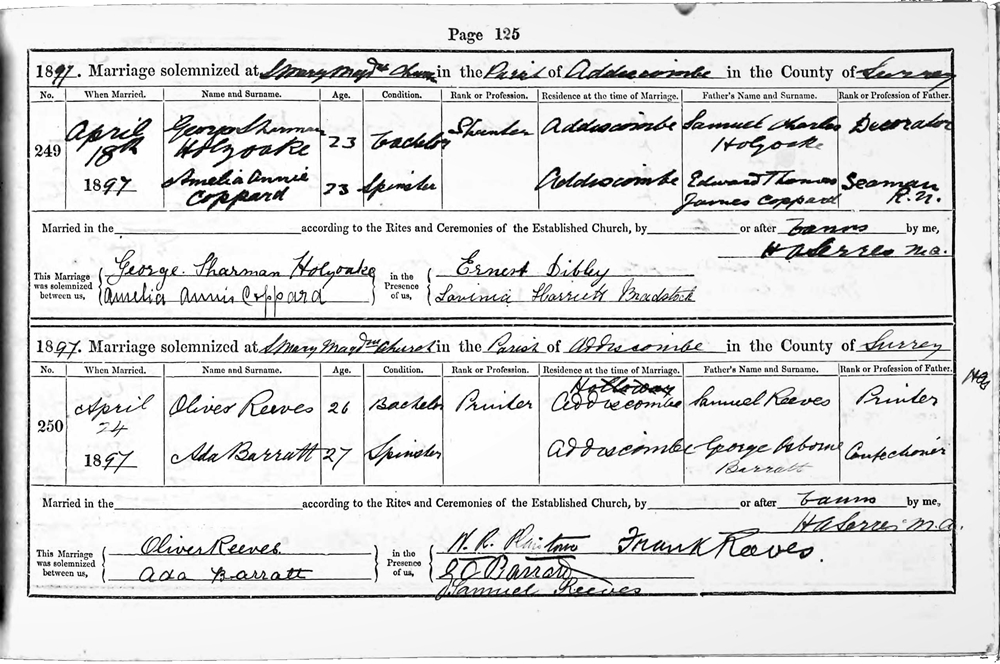 Page 125
1897. Marriage solemnized at S Mary Magdne Church in the Parish of Addiscombe in the County of Surrey
No. When Married. Name and Surname. Age. Condition. Rank or Profession. Residence at the time of Marriage. Father's Name and Surname. Rank or Profession of Father.
249 April 18th George Sharman Holyoake 23 Bachelor Addiscombe Samuel Charles Holyoake Decorator
1897 Amelia Annie Coppard 23 Spinster Addiscombe Edward Thomas James Coppard Seaman R.N.
Married in the according to the Rites and Ceremonies of the Established Church, by or after Banns by me,
H A Serres M.A.
This Marriage was solemnized between us, George Sharman Holyoake in the Presence of us, Ernest Dibley
Amelia Annie Coppard Lavinia Harriett Bradstock
1897. Marriage solemnized at S Mary Magdne Church in the Parish of Addiscombe in the County of Surrey
No. When Married. Name and Surname. Age. Condition. Rank or Profession. Residence at the time of Marriage. Father's Name and Surname. Rank or Profession of Father.
250 April 24 Oliver Reeves 26 Bachelor Printer Holloway Addiscombe Samuel Reeves Printer
1897 Ada Barratt 27 Spinster Addiscombe George Osborne Barratt Confectioner
Married in the according to the Rites and Ceremonies of the Established Church, by or after Banns by me,
H A Serres M.A.
This Marriage was solemnized between us, Oliver Reeves in the Presence of us, W. R. Frank Reeves.
Ada Barratt G O Barratt
Samuel Reeves